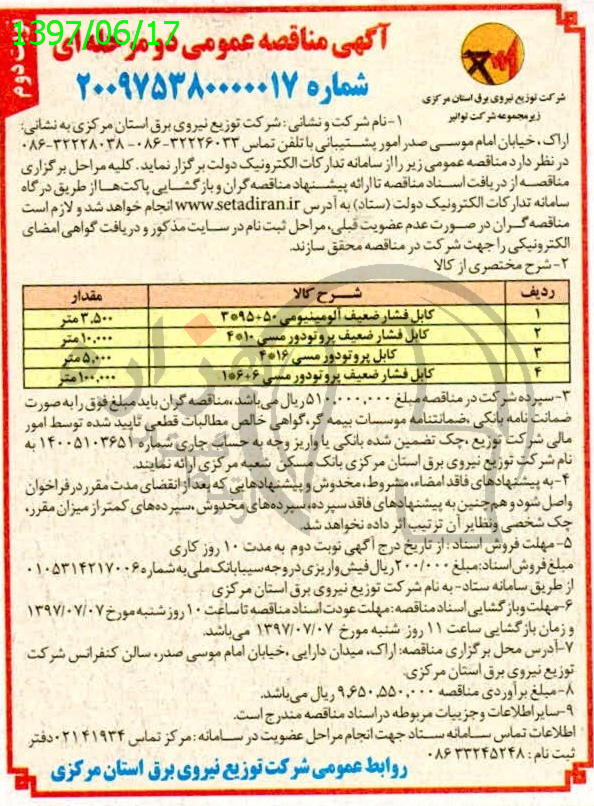 1397/06/17
نوبت دوم
آگهی مناقصه عمومی دو مرحله ای
شماره ۲۰۰۹۷۵۳۸۰۰۰۰۰۰۱۷
شرکت توزیع نیروی برق استان مرکزی
زیر مجموعه شرکت توانیر
۱-نام شرکت و نشانی: شرکت توزیع نیروی برق استان مرکزی به نشانی:
اراک، خیابان امام موسی صدر امور پشتیبانی با تلفن تماس ۳۲۲۲۶۰۳۳-۰۸۶ - ۳۲۲۲۸۰۳۸-۰۸۶
در نظر دارد مناقصه عمومی زیر را از سامانه تدارکات الکترونیک دولت برگزار نماید. کلیه مراحل برگزاری
مناقصه از دریافت اسناد مناقصه تا ارائه پیشنهاد مناقصه گران و بازگشایی پاکت‌ها از طریق درگاه
سامانه تدارکات الکترونیک دولت (ستاد) به آدرس www.setadiran.ir انجام خواهد شد و لازم است
مناقصه گران در صورت عدم عضویت قبلی، مراحل ثبت نام در سایت مذکور و دریافت گواهی امضای
الکترونیکی را جهت شرکت در مناقصه محقق سازند.
۲-شرح مختصری از کالا
ردیف شرح کالا مقدار
۱ کابل فشار ضعیف آلومینیومی ۵۰+۹۵*۳ ۳,۵۰۰ متر
۲ کابل فشار ضعیف پروتودور مسی ۱۰*۴ ۱۰,۰۰۰ متر
۳ کابل پروتودور مسی ۱۶*۴ ۵,۰۰۰ متر
۴ کابل فشار ضعیف پروتودور مسی ۶+۶*۱ ۱۰۰,۰۰۰ متر
۳-سپرده شرکت در مناقصه مبلغ ۵۱۰,۰۰۰,۰۰۰ ریال می باشد، مناقصه گران باید مبلغ فوق را به صورت
ضمانت نامه بانکی، ضمانتنامه موسسات بیمه گر، گواهی خالص مطالبات قطعی تایید شده توسط امور
مالی شرکت توزیع، چک تضمین شده بانکی یا واریز وجه به حساب جاری شماره ۱۴۰۰۵۱۰۳۶۵۱ به
نام شرکت توزیع نیروی برق استان مرکزی بانک مسکن شعبه مرکزی ارائه نمایند.
۴-به پیشنهادهای فاقد امضاء، مشروط، مخدوش و پیشنهادهایی که بعد از انقضای مدت مقرر در فراخوان
واصل شود و هم چنین به پیشنهادهای فاقد سپرده، سپرده های مخدوش، سپرده های کمتر از میزان مقرر،
چک شخصی و نظایر آن ترتیب اثر داده نخواهد شد.
۵- مهلت فروش اسناد: از تاریخ درج آگهی نوبت دوم به مدت ۱۰ روز کاری
مبلغ فروش اسناد: مبلغ ۲۰۰/۰۰۰ ریال فیش واریزی در وجه سیبا بانک ملی به شماره ۰۱۰۵۳۱۴۲۱۷۰۰۶
از طریق سامانه ستاد- به نام شرکت توزیع نیروی برق استان مرکزی
۶-مهلت و بازگشایی اسناد مناقصه: مهلت عودت اسناد مناقصه تا ساعت ۱۰ روز شنبه مورخ ۱۳۹۷/۰۷/۰۷
و زمان بازگشایی ساعت ۱۱ روز شنبه مورخ ۱۳۹۷/۰۷/۰۷ می باشد.
۷-آدرس محل برگزاری مناقصه: اراک، میدان دارایی، خیابان امام موسی صدر، سالن کنفرانس شرکت
توزیع نیروی برق استان مرکزی.
۸-مبلغ برآوردی مناقصه ۹,۶۵۰,۵۵۰,۰۰۰ ریال می باشد.
۹-سایر اطلاعات و جزییات مربوطه در اسناد مناقصه مندرج است.
اطلاعات تماس سامانه ستاد جهت انجام مراحل عضویت در سامانه: مرکز تماس ۰۲۱۴۱۹۳۴ دفتر
ثبت نام: ۰۸۶۳۳۲۴۵۲۴۸
روابط عمومی شرکت توزیع نیروی برق استان مرکزی